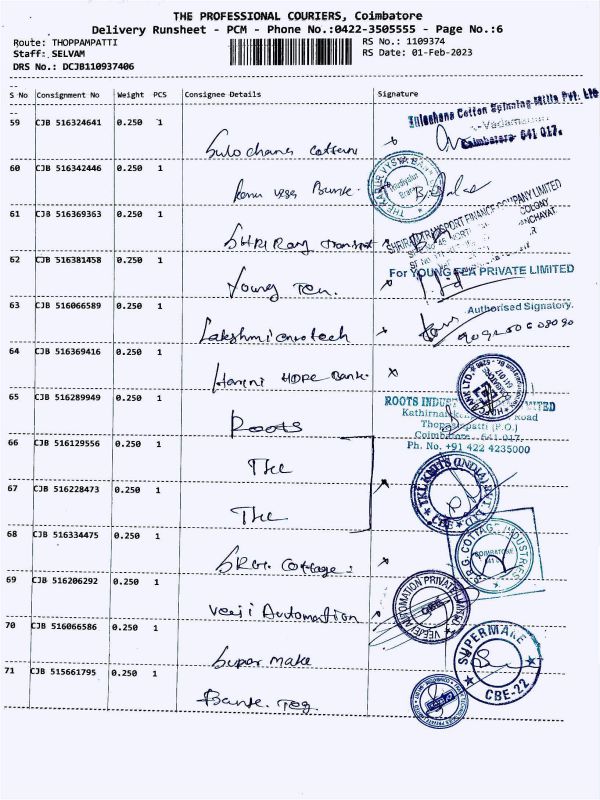 THE PROFESSIONAL COURIERS, Coimbatore
Delivery Runsheet - PCM - Phone No.:0422-3505555 - Page No.:6
Route: THOPPAMPATTI
RS No.: 1109374
Staff: SELVAM
RS Date: 01-Feb-2023
DRS No.: DCJB110937406
S No Consignment No Weight PCS Consignee Details Signature
Sulochana Cotton Spinning Mills Pvt. Ltd
Coimbatore- 641 017.
59 CJB 516324641 0.250 1
Sulochana Cotton
60 CJB 516342446 0.250 1
THE KARUR VYSYA BANK
61 CJB 516369363 0.250 1
SHRIRAM TRANSPORT FINANCE COMPANY LIMITED
SHRI Ram Transport
62 CJB 516381458 0.250 1
For YOUNG TEA PRIVATE LIMITED
Young Tea
63 CJB 516066589 0.250 1
Authorised Signatory.
Lakshmi
64 CJB 516369416 0.250 1
HDFC Bank
HDFC BANK LTD.
65 CJB 516289949 0.250 1
ROOTS LIMITED
Road
Thoppampatti (P.O.)
Coimbatore - 641 017.
Ph. No. +91 422 4235000
ROOTS
66 CJB 516129556 0.250 1
67 CJB 516228473 0.250 1
TKL KNITS (INDIA) PVT. LTD.
68 CJB 516334475 0.250 1
S.R.G. COTTAGE INDUSTRIES
COIMBATORE
SRG Cottage
69 CJB 516206292 0.250 1
Veeji Automation
VEEJEI AUTOMATION PRIVATE LIMITED
70 CJB 516066586 0.250 1
Super make
SUPERMAKE
CBE-22
71 CJB 515661795 0.250 1